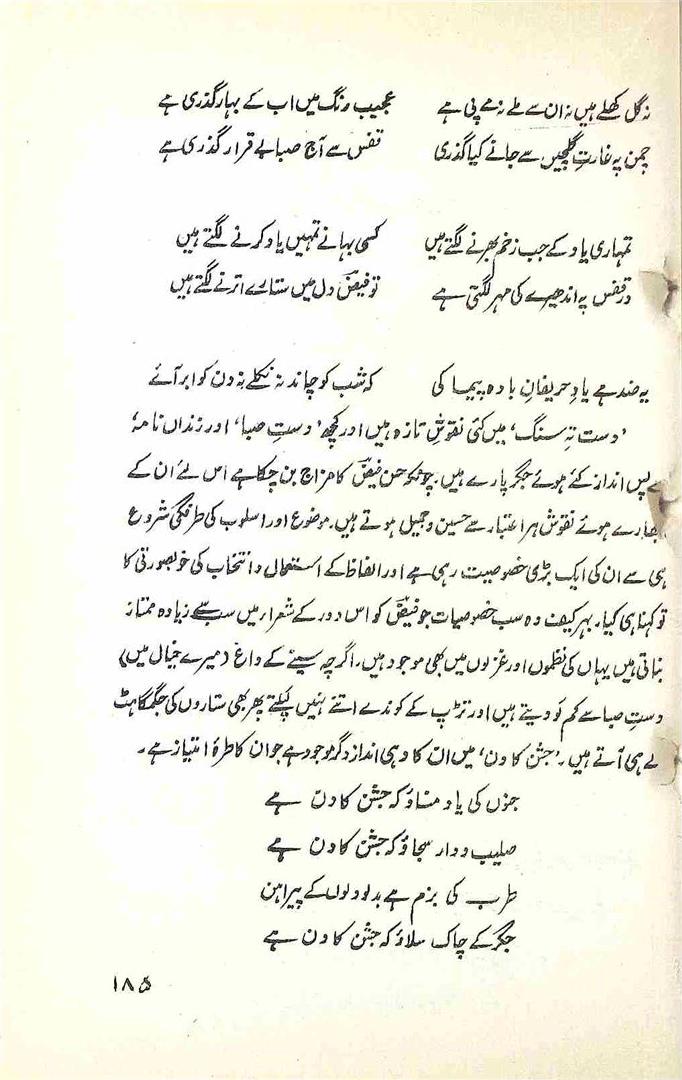 نہ گل کھلے ہیں نہ ان سے ملے نہ مے پی ہے عجیب رنگ میں اب کے بہار گذری ہے
چمن پہ غارتِ گلچیں سے جانے کیا گذری قفس سے آج صبا بے قرار گذری ہے
تمہاری یاد کے جب زخم بھرنے لگتے ہیں کسی بہانے تمہیں یاد کرنے لگتے ہیں
درِ قفس پہ اندھیرے کی مہر لگتی ہے تو فیضؔ دل میں ستارے اترنے لگتے ہیں
یہ ضد ہے یادِ حریفانِ بادہ پیما کی کہ شب کو چاند نہ نکلے نہ دن کو ابر آئے
’دست تہِ سنگ‘ میں کئی نقوشِ تازہ ہیں اور کچھ ’دستِ صبا‘ اور زنداں نامہ‘
سے پس انداز کئے ہوئے جگر پارے ہیں۔ چونکہ حسن فیضؔ کا مزاج بن چکا ہے اس لئے ان کے
ابھارے ہوئے نقوش ہر اعتبار سے حسین و جمیل ہوتے ہیں۔ موضوع اور اسلوب کی طرفگی شروع
ہی سے ان کی ایک بڑی خصوصیت رہی ہے اور الفاظ کے استعمال و انتخاب کی خوبصورتی کا
تو کہنا ہی کیا۔ بہر کیف وہ سب خصوصیات جو فیضؔ کو اس دور کے شعرار میں سب سے زیادہ ممتاز
بناتی ہیں یہاں کی نظموں اور غزلوں میں بھی موجود ہیں۔ اگرچہ سینے کے داغ (میرے خیال میں)
دستِ صبا سے کم لَو دیتے ہیں اور تڑپ کے کوندے اتنے نہیں لپکتے پھر بھی ستاروں کی جگمگاہٹ
لے ہی آتے ہیں۔ ’جشن کا دن‘ میں ان کا وہی انداز دگر موجود ہے جو ان کا طرۂ امتیاز ہے۔
جنوں کی یاد مناؤ کہ جشن کا دن ہے
صلیب و دار سجاؤ کہ جشن کا دن ہے
طرب کی بزم ہے بدلو دلوں کے پیراہن
جگر کے چاک سلاؤ کہ جشن کا دن ہے
۱۸۵